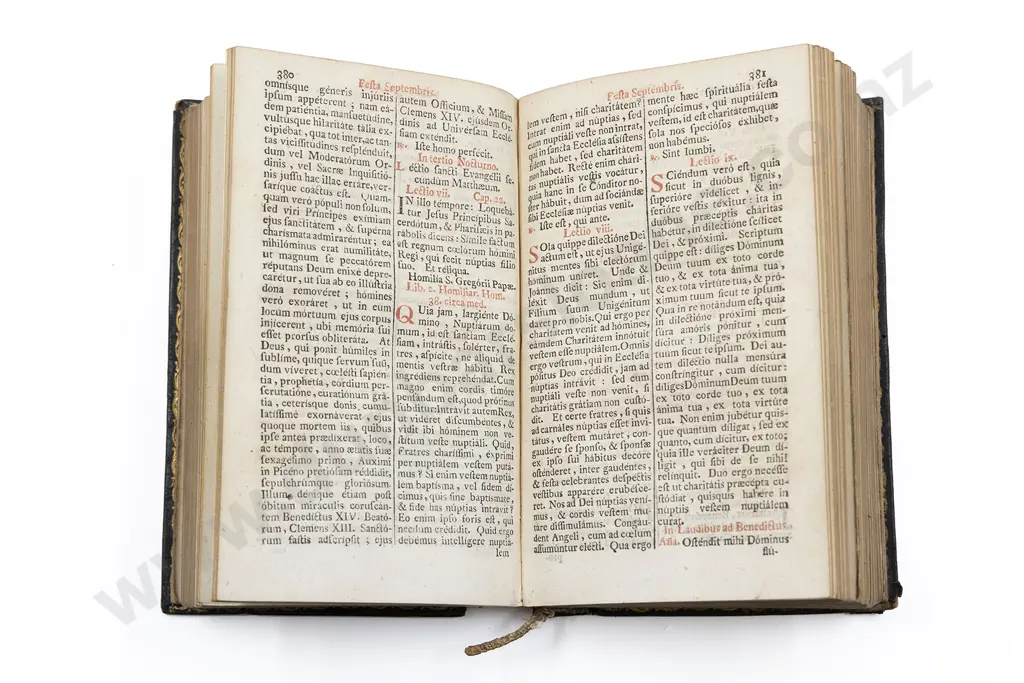 380
Festa Septembris.
omnísque géneris injúriis
ipsum appéterent ; nam eá-
dem patiéntia, mansuetúdine,
vultusque hilaritáte tália ex-
cipiébat , qua tot inter,ac tan-
tas vicissitúdines resplénduit,
dum vel Moderatórum Or-
dinis , vel Sacræ Inquisitió-
nis jussu hac illac erráre, ver-
sarique coáctus est. Quám-
quam verò pópuli non solum,
sed viri Príncipes exímiam
ejus sanctitátem , & supérna
chárismata admiraréntur ; ea
nihilóminus erat humilitáte,
ut magnum se peccatórem
réputans Deum eníxè depre-
carétur, ut sua ab eo illústria
dona removéret ; hómines
verò exoráret , ut in eum
locum mórtuum ejus corpus
injícerent , ubi memória sui
esset prorsus obliteráta. At
Deus, qui ponit húmiles in
sublíme, quique servum suũ,
dum víveret , cœlésti sapién-
tia, prophetía, córdium per-
scrutatióne, curatiónum grá-
tia , ceterísque donis cumu-
latíssimè exornáverat , ejus
quoque mortem iis , quibus
ipse ántea prædíxerat , loco,
ac témpore , anno ætátis suæ
sexagésimo primo , Auximi
in Picéno pretiósam réddidit,
sepulchrúmque gloriósum.
Illum, deníque étiam post
óbitum miráculis coruscán-
tem Benedíctus XIV. Beató-
rum , Clemens XIII. Sanctó-
rum fastis adscripsit ; ejus
autem Officium, & Missam
Clemens XIV. ejúsdem Or-
dinis ad Univérsam Ecclé-
siam exténdit.
℟. Iste homo perfécit.
In tertio Nocturno.
Léctio sancti Evangélii se-
cúndùm Matthæum.
Lectio vii. Cap. 22.
IN illo témpore : Loquebá-
tur Jesus Princípibus Sa-
cerdótum, & Pharisæis in pa-
rábolis dicens : Símile factum
est regnum cœlórum hómini
Regi , qui fecit núptias fílio
suo. Et réliqua.
Homilía S. Gregórii Papæ.
Lib. 2. Homiliar. Hom.
38. circa med.
QUia jam, largiénte Dó-
mino , Nuptiárum do-
mum, id est sanctam Ecclé-
siam , intrástis , solérter, fra-
tres , aspícite , ne áliquid de
mentis vestræ hábitu Rex
ingrédiens reprehéndat. Cum
magno enim cordis timóre
pensándum est,quod prótinus
súbditur: Intrávit autem Rex,
ut vidéret discumbéntes , &
vidit ibi hóminem non ve-
stítum veste nuptiáli. Quid,
Fratres charíssimi , éxprimi
per nuptiálem vestem putá-
mus ? Si enim vestem nuptiá-
lem baptísma , vel fidem dí-
cimus, quis sine baptísmate,
& fide has núptias intrávit ?
Eo enim ipso foris est , qui
necdum crédidit. Quid ergo
debémus intellígere nuptiá-
lem
381
Festa Septembris.
lem vestem , nisi charitátem?
Intrat enim ad núptias , sed
cum nuptiáli veste non intrat,
qui in sancta Ecclésia assístens
fidem habet , sed charitátem
non habet. Rectè enim chári-
tas nuptiális vestis vocátur,
quia hanc in se Cónditor no-
ster hábuit , dum ad sociándæ
sibi Ecclésiæ núptias venit.
℟. Iste est , qui ante.
Lectio viii.
SOla quippe dilectióne Dei
actum est , ut ejus Unigé-
nitus mentes sibi electórum
hóminum uníret. Unde &
Joánnes dicit : Sic enim di-
léxit Deus mundum , ut
Fílium suum Unigénitum
daret pro nobis. Qui ergo per
charitátem venit ad hómines,
eámdem Charitátem innótuit
vestem esse nuptiálem. Omnis
ergo vestrum , qui in Ecclésia
pósitus Deo crédidit , jam ad
núptias intrávit : sed cum
nuptiáli veste non venit , si
charitátis grátiam non custó-
dit. Et certe fratres , si quis
ad carnáles núptias esset invi-
tátus , vestem mutáret , con-
gaudére se sponso, & sponsæ
ex ipso sui hábitus decóre
osténderet , inter gaudéntes ,
& festa celebrántes despéctis
véstibus apparére erubésce-
ret. Nos ad Dei núptias vení-
mus , & cordis vestem mu-
táre dissimulámus. Congáu-
dent Angeli , cum ad cœlum
assumúntur elécti. Qua ergo
mente hæc spirituália festa
conspícimus , qui nuptiálem
vestem, id est charitátem,quæ
sola nos speciósos exhíbet ,
non habémus.
℟. Sint lumbi.
Lectio ix.
SCiéndum verò est , quia
sicut in duóbus lignis,
superióre vidélicet , & in-
ferióre vestis téxitur : ita in
duóbus præcéptis cháritas
habétur, in dilectióne scílicet
Dei , & próximi. Scriptum
quippe est : díliges Dóminum
Deum tuum ex toto corde
tuo , & ex tota ánima tua ,
& ex tota virtúte tua, & pró-
ximum tuum sicut te ipsum.
Qua in re notándum est, quia
in dilectióne próximi men-
súra amóris pónitur , cum
dícitur : Díliges próximum
tuum sicut te ipsum. Dei au-
tem diléctio nulla mensúra
constríngitur , cum dícitur:
díliges Dóminum Deum tuum
ex toto corde tuo , ex tota
ánima tua , ex tota virtúte
tua. Non enim jubétur quis-
que quantum díligat , sed ex
quanto, cum dícitur, ex toto;
quia ille veráciter Deum dí-
ligit , qui sibi de se nihil
relínquit. Duo ergo necésse
est ut charitátis præcépta cu-
stódiat , quisquis habére in
núptiis vestem nuptiálem
curat.
In Laudibus ad Benedictus.
Aña. Osténdit mihi Dóminus
flú-